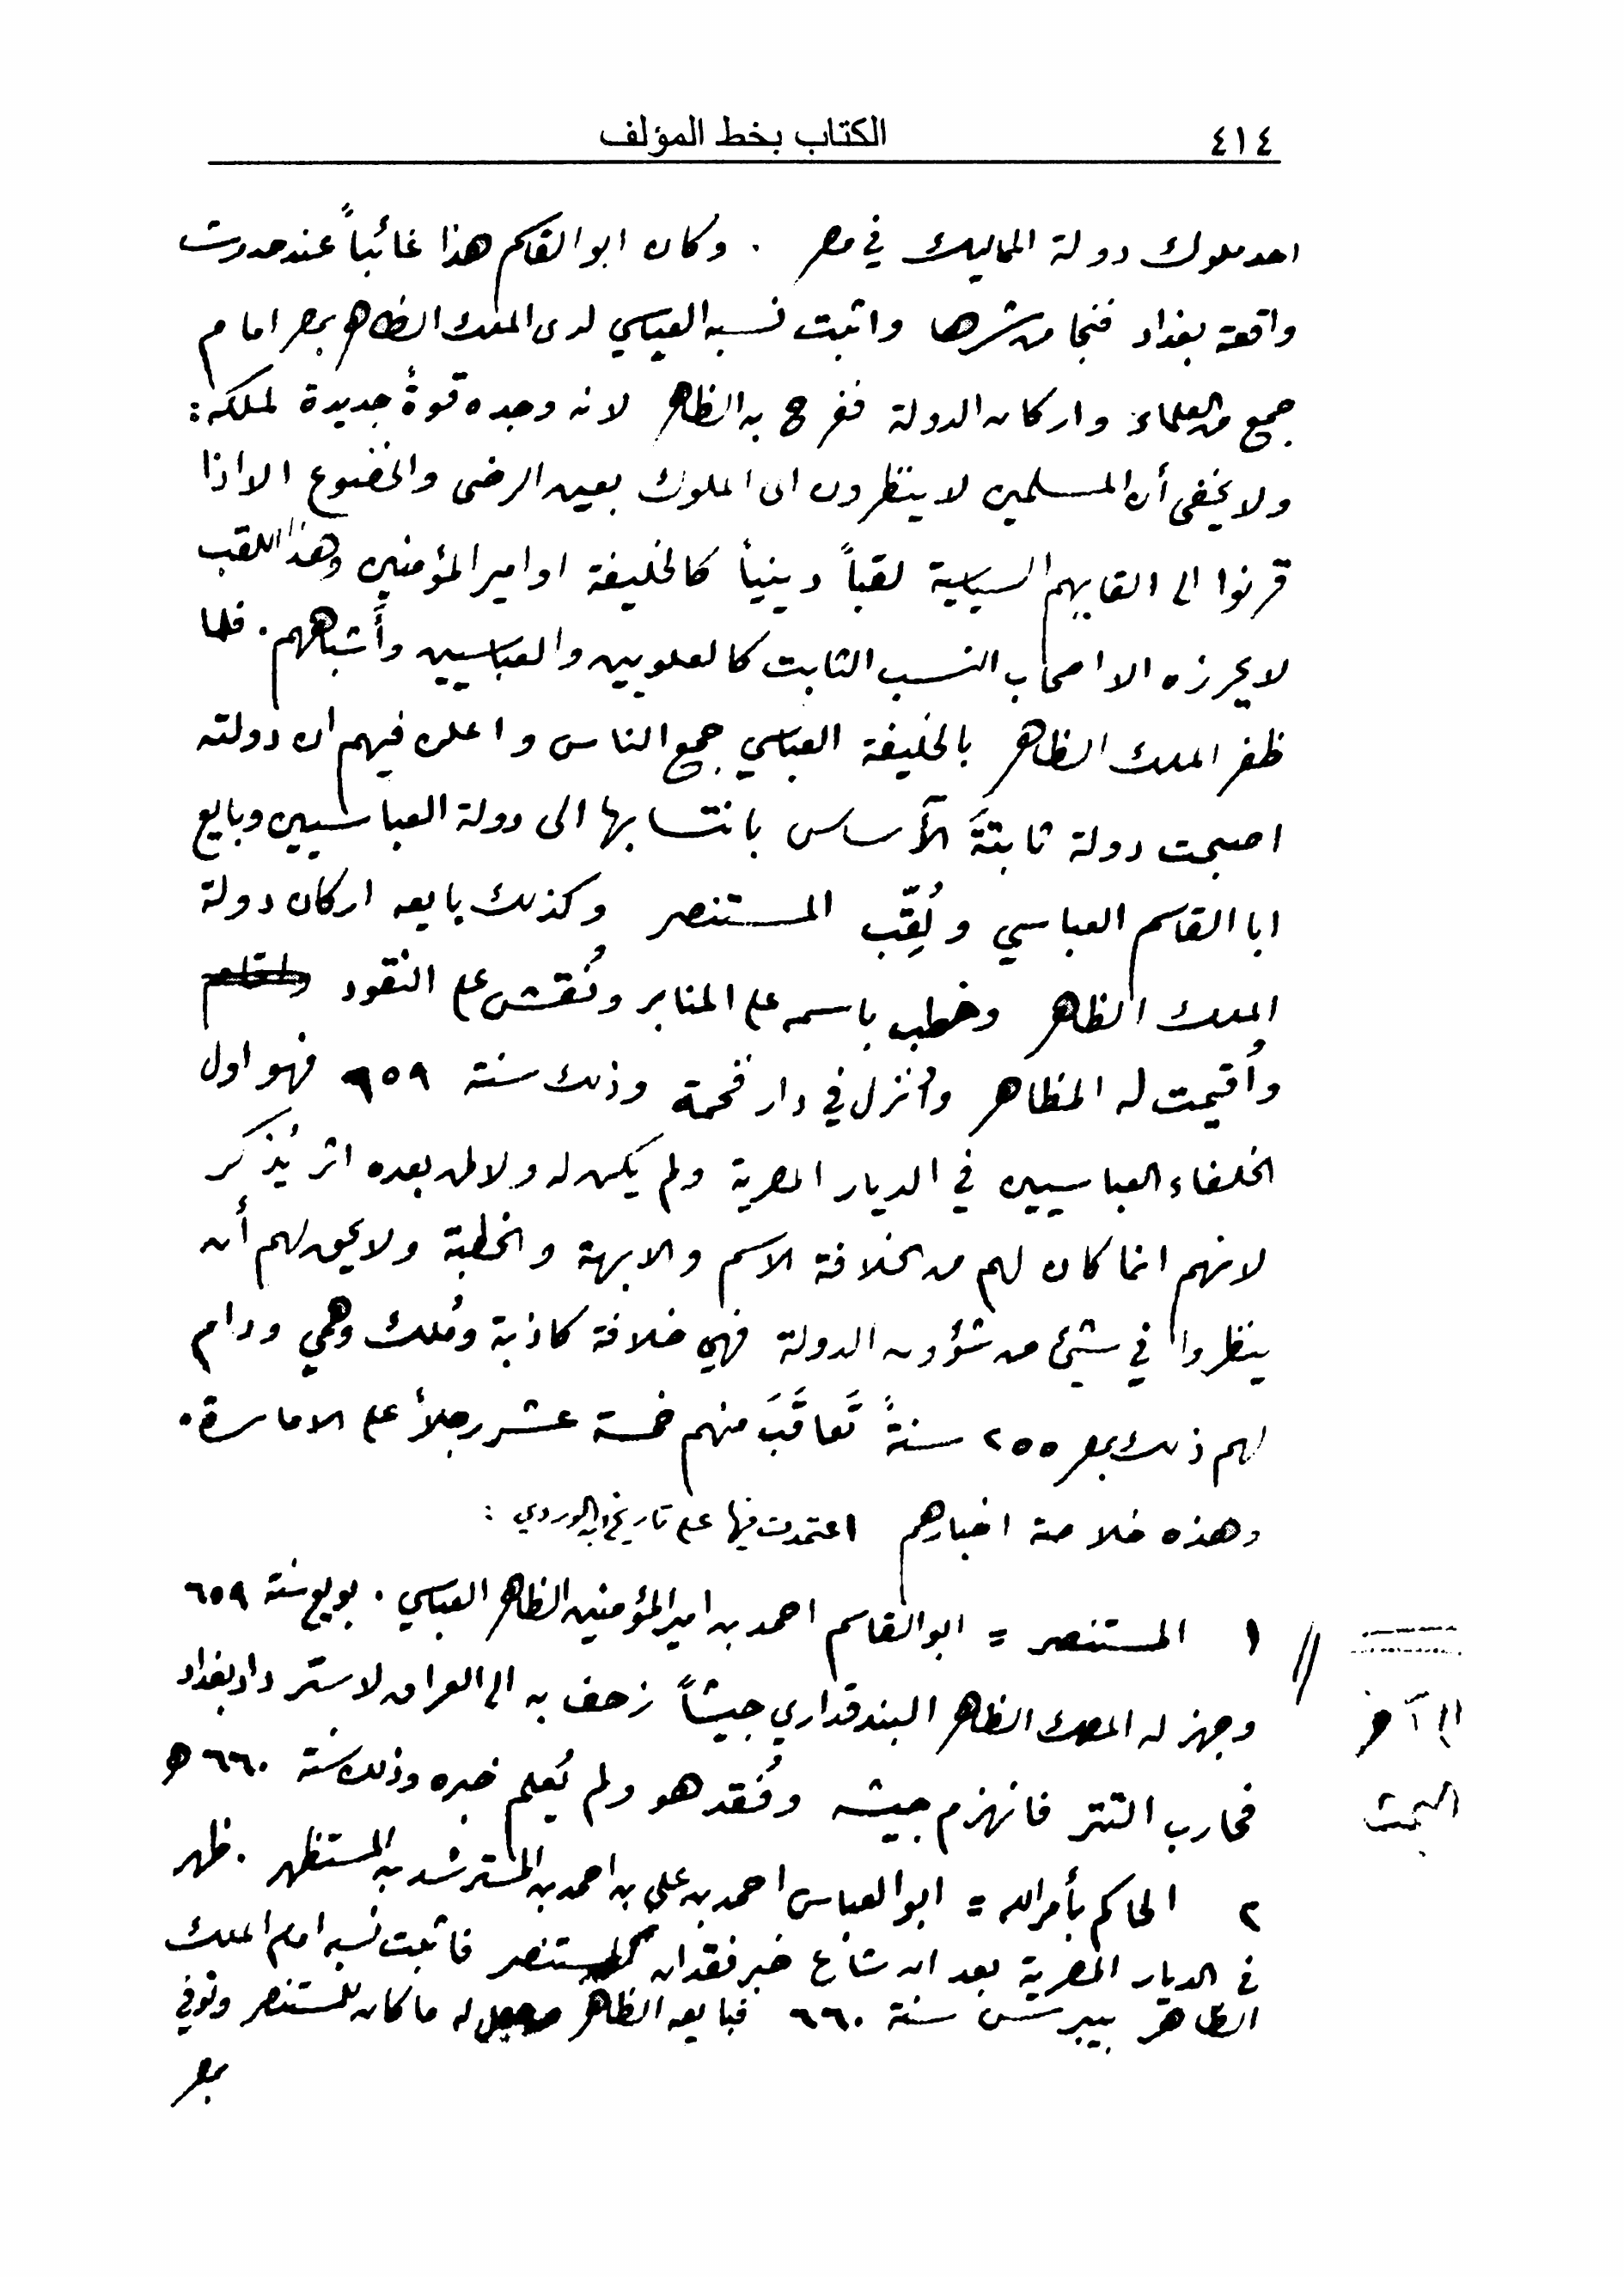 ٤١٤ الكتاب بخط المؤلف
احد ملوك دولة المماليك في مصر . وكان ابو القاسم هذا غائباً عند حدوث
واقعة بغداد فنجا من شرها واثبت نسبه العباسي لدى الملك الظاهر بمصر امام
جمع من العلماء واركان الدولة ففرح به الظاهر لانه وجده قوةً جديدة لملكه :
ولا يخفى أن المسلمين لا ينظرون الى الملوك بعين الرضى والخضوع الا اذا
قرنوا الى القابهم السياسية لقباً دينياً كالخليفة او امير المؤمنين وهذا اللقب
لا يحرزه الا اصحاب النسب الثابت كالعلويين والعباسيين وأشباههم . فلما
ظفر الملك الظاهر بالخليفة العباسي جمع الناس واعلن فيهم ان دولته
اصبحت دولة ثابتةَ الآساس بانتسابها الى دولة العباسيين وبايع
ابا القاسم العباسي ولُقِّب المستنصر وكذلك بايعه اركان دولة
الملك الظاهر وخطب باسمه على المنابر ونُقش على النقود
وأُقيمت له المظاهر وأُنزل في دار فخمة وذلك سنة ٦٥٩ فهو اول
الخلفاء العباسيين في الديار المصرية ولم يكن له ولا لمن بعده اثر يُذكر
لانهم انما كان لهم من الخلافة الاسم والابهة والخطبة ولا يحق لهم أن
ينظروا في شيئ من شؤون الدولة فهي خلافة كاذبة ومُلك وهمي ودام
لهم ذلك بمصر ٢٥٥ سنةً تَعاقَبَ منهم خمسة عشر رجلاً على الامارة .
وهذه خلاصة اخبارهم اعتمدت فيها على تاريخ ابن الوردي :
١ المستنصر = ابو القاسم احمد بن امير المؤمنين الظاهر العباسي . بويع سنة ٦٥٩
وجهز له الملك الظاهر البندقداري جيشاً زحف به الى العراق لاسترداد بغداد
الى آخر
فحارب التتر فانهزم جيشه وفُقد هو ولم يُعلم خبره وذلك سنة ٦٦٠ ھ
البحث
٢ الحاكم بأمر الله = ابو العباس احمد بن علي بن احمد بن المسترشد بن المستظهر . ظهر
في الديار المصرية بعد ان شاع خبر فقدان المستنصر فاثبت نسبه امام الملك
الظاهر بيبرس سنة ٦٦٠ فبايعه الظاهر وجعل له ما كان للمستنصر وتوفي
بمصر